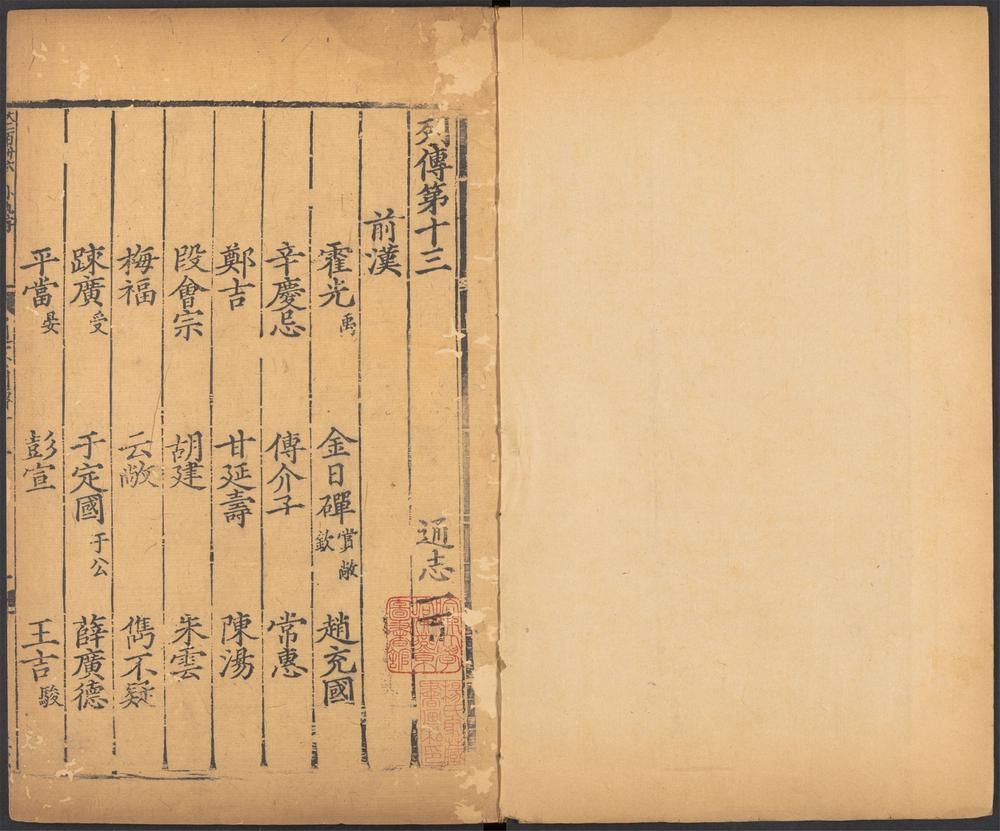 列傳第十三 通志一百
前漢
霍光 禹 金日磾 賞 敞 欽 趙充國
辛慶忌 傅介子 常惠
鄭吉 甘延壽 陳湯
段會宗 胡建 朱雲
梅福 云敞 雋不疑
踈廣 受 于定國 于公 薛廣德
平當 晏 彭宣 王吉 駿